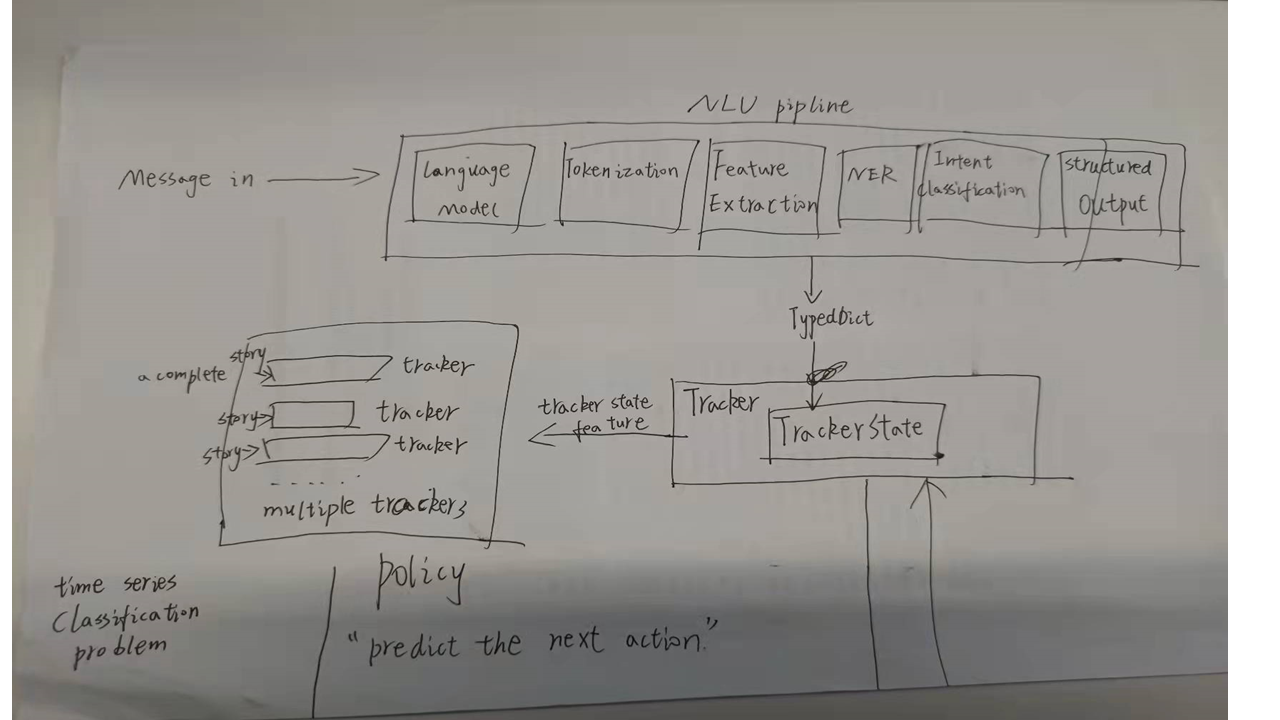 NLU pipline
Message in
Language
Model
Tokenization
Feature
Extraction
NER
Intent
classification
structured
Output
TypedDict
Tracker
TrackerState
tracker state
feature
story
a complete
tracker
story
tracker
story
tracker
multiple trackers
policy
time series
Classification
problem
"predict the next action."